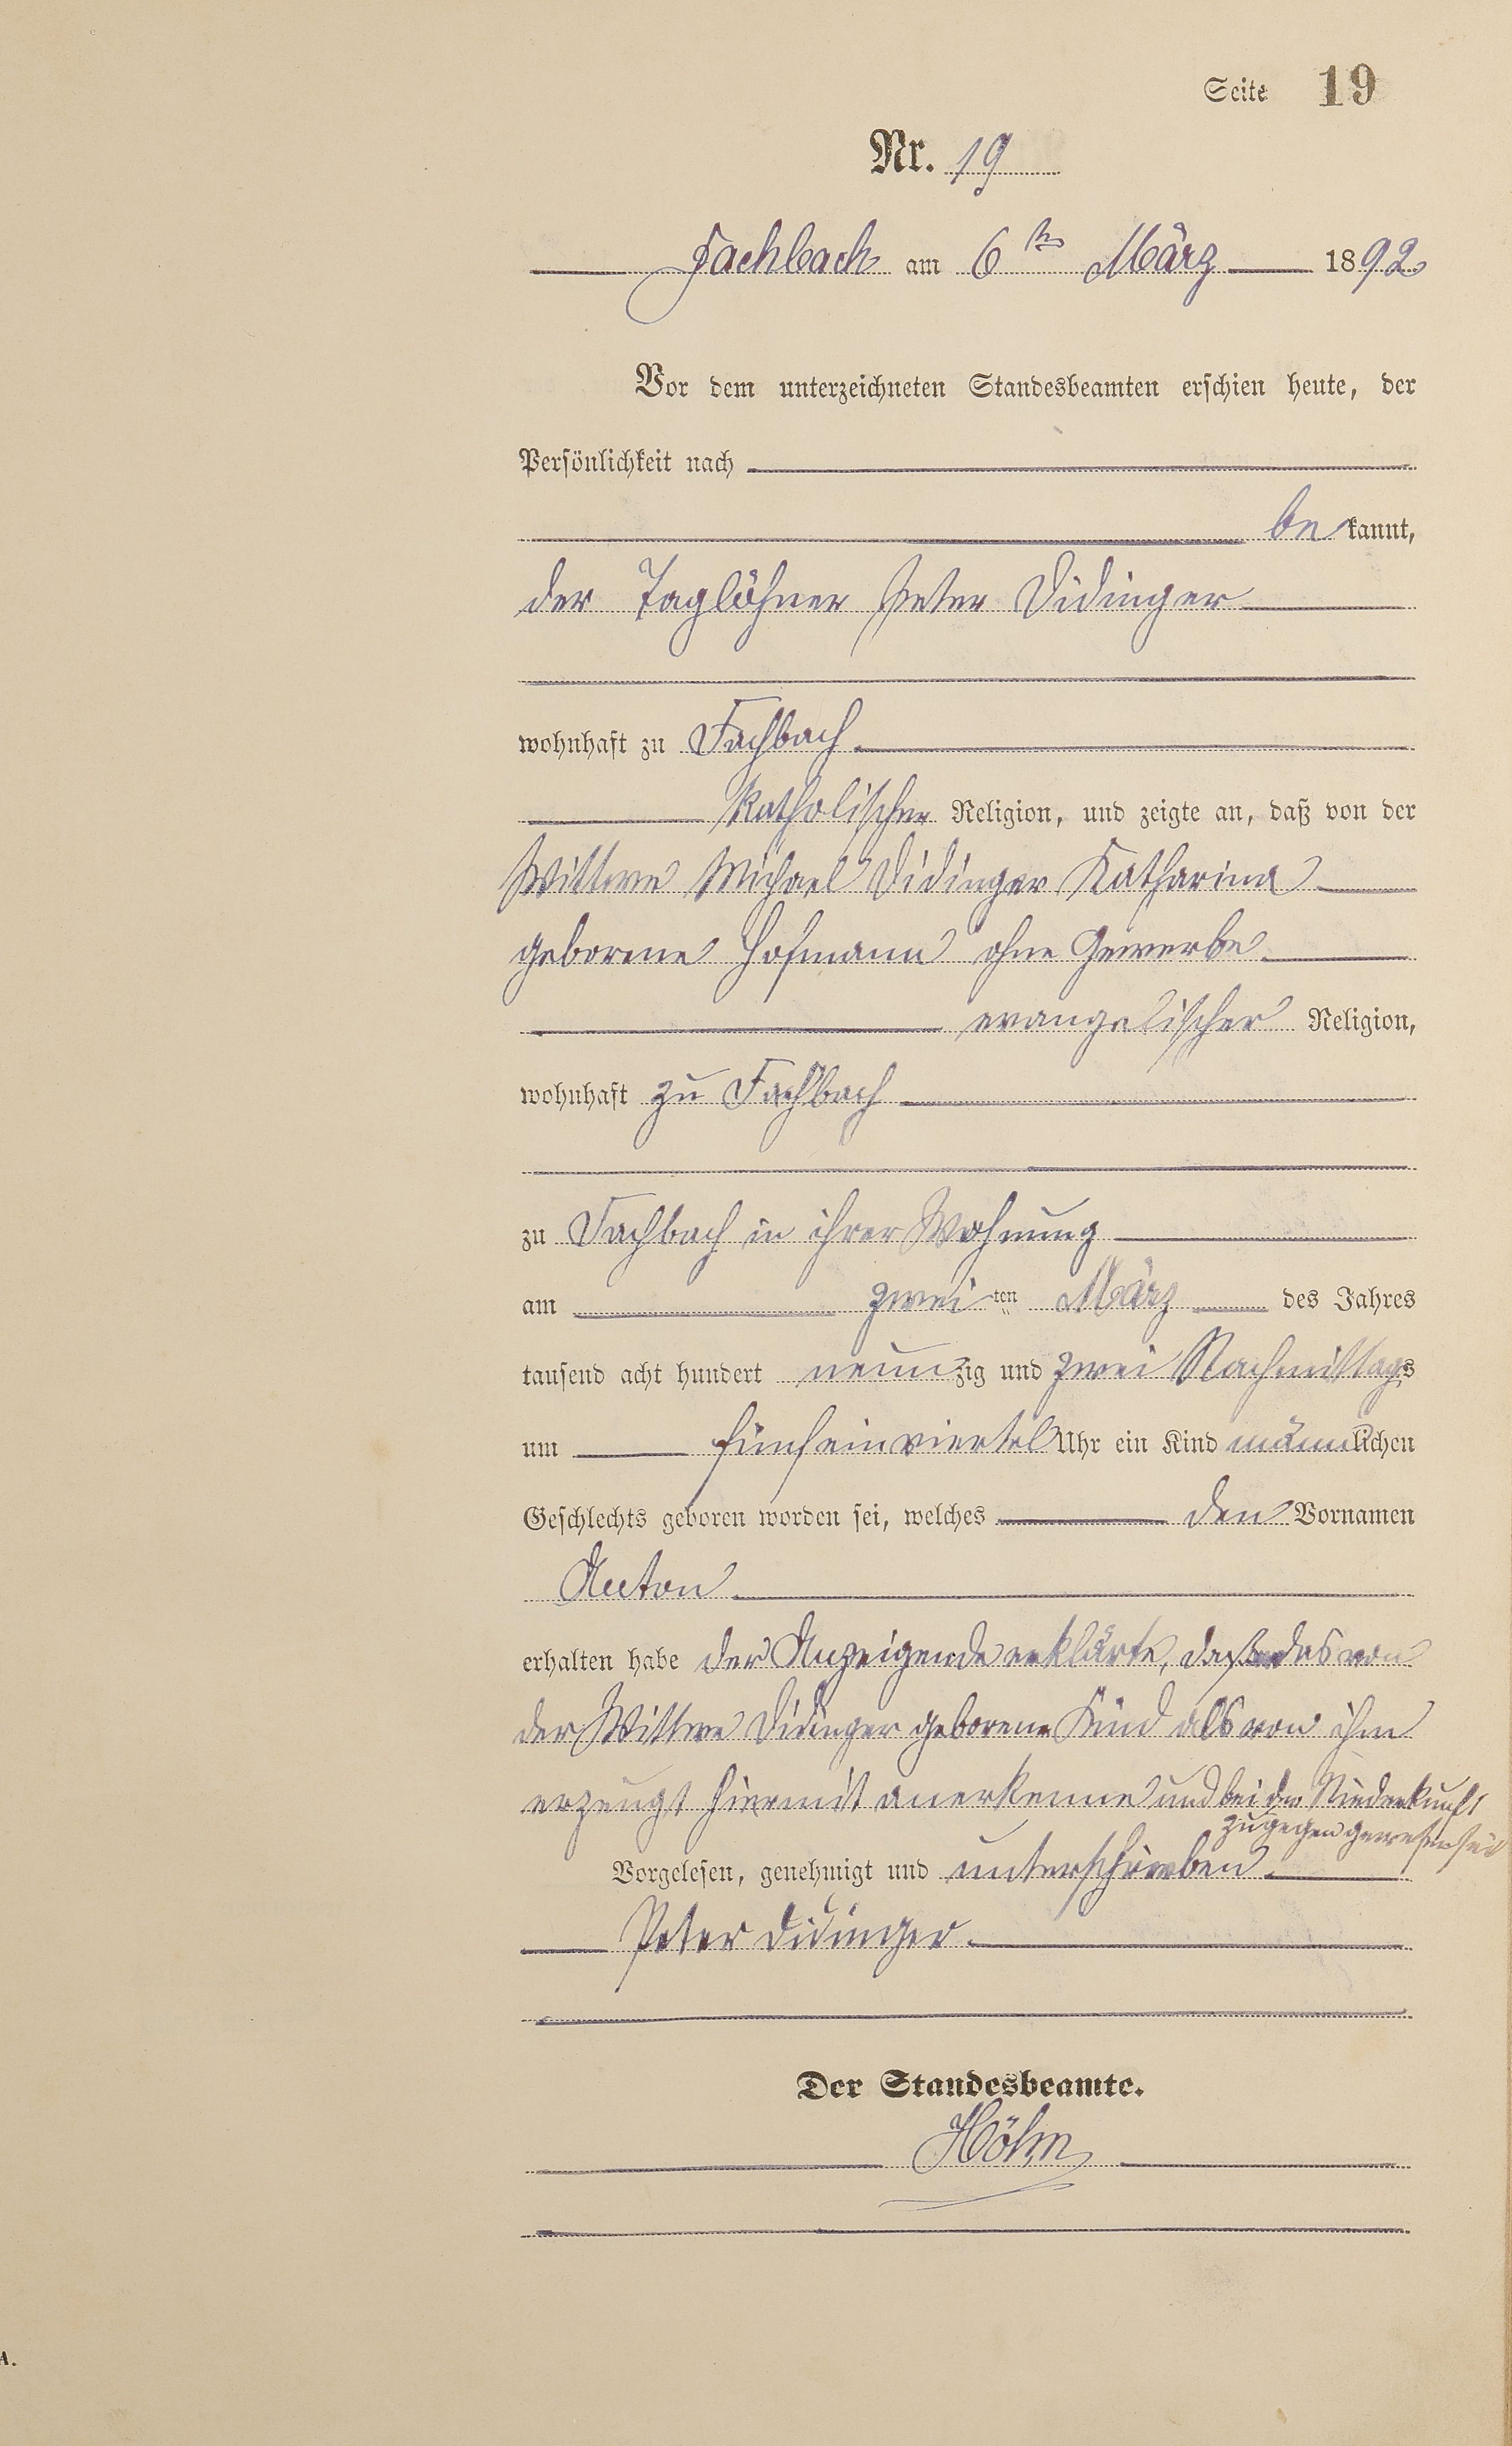 Seite 19
Nr. 19
Fachbach am 6ten März 1892
Vor dem unterzeichneten Standesbeamten erschien heute, der
Persönlichkeit nach
bekannt,
der Taglöhner Peter Didinger
wohnhaft zu Fachbach
katholischer Religion, und zeigte an, daß von der
Wittwe Michael Didinger Katharina
geborene Hofmann ohne Gewerbe
evangelischer Religion,
wohnhaft zu Fachbach
zu Fachbach in ihrer Wohnung
am zweiten März des Jahres
tausend acht hundert neunzig und zwei Nachmittags
um fünfeinviertel Uhr ein Kind männlichen
Geschlechts geboren worden sei, welches den Vornamen
Anton
erhalten habe der Anzeigende erklärte, daß das von
der Wittwe Didinger geborene Kind als von ihm
erzeugt hiermit anerkenne und bei der Niederkunft
zugegen gewesen sei
Vorgelesen, genehmigt und unterschrieben.
Peter Didinger.
Der Standesbeamte.
Höhn
A.